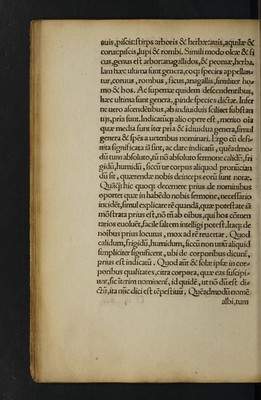 auis, piscis: stirps arboris & herbæ: auis, aquilæ &
corui: piscis, lupi & rombi. Simili modo oleæ & fi
cus, genus est arbor: anagallidos, & peoniæ, herba.
Iam hæc ultima sunt genera, eoq; species appellan-
tur, coruus, rombus, ficus, anagallis, similiter ho-
mo & bos. Ac superne quidem descendentibus,
hæc ultima sunt genera, pinde species dictæ. Infer
ne uero ascendentibus, ab indiuiduis scilicet substan
tijs, pria sunt. Indicatūq; alio opere est, merito oia
quæ media sunt iter pria & idiuidua genera, simul
genera & spēs a ueteribus nominari. Ergo cū defi-
nita significata iā sint, ac clare indicatū, quēadmo-
dū tum absoluto, tū nō absoluto sermone calidū, fri
gidū, humidū, siccū ue corpus aliquod pronūcian
dū sit, quærendæ nobis deinceps eorū sunt notæ.
Quāq; hic quoq; decemere prius de nominibus
oportet quæ in habēdo nobis sermone, necessario
incidēt, simul explicare rē quandā, quæ potestate iā
mōstrata prius est, nō tñ ab oibus, qui hos cōmen
tarios euoluēt, facile saltem intelligi potest. Itaq; de
noibus prius locutus, mox ad rē reuertar. Quod
calidum, frigidū, humidum, siccū non unū aliquid
simpliciter significent, ubi de corporibus dicunt,
prius est indicatū. Quod aūt & solæ ipsæ in cor-
poribus qualitates, citra corpora, quæ eas suscipi-
unt, sic iterim nominent, id quidē, ut nō dū est di-
ctū, ita nūc dici est tēpestiuū. Quēadmodū nomē
albi, tum